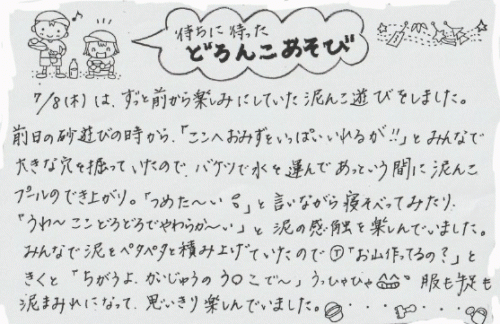 待ちに待った
どろんこあそび
7/8(木)は、ずっと前から楽しみにしていた泥んこ遊びをしました。
前日の砂遊びの時から、「ここへおみずといっぱいいれるが!!」とみんなで
大きな穴を掘っていたので、バケツで水を運んであっという間に泥んこ
プールのでき上がり。「つめた〜い」と言いながら寝そべってみたり、
「うわ〜ここどろどろでやわらか〜い」と泥の感触を楽しんでいました。
みんなで泥をペタペタと積み上げていたので Ⓣ「お山作ってるの?」と
きくと「ちがうよ、かいじゅうのう○こで〜」うっひゃひゃ 服も手足も
泥まみれになって、思いきり楽しんでいました。